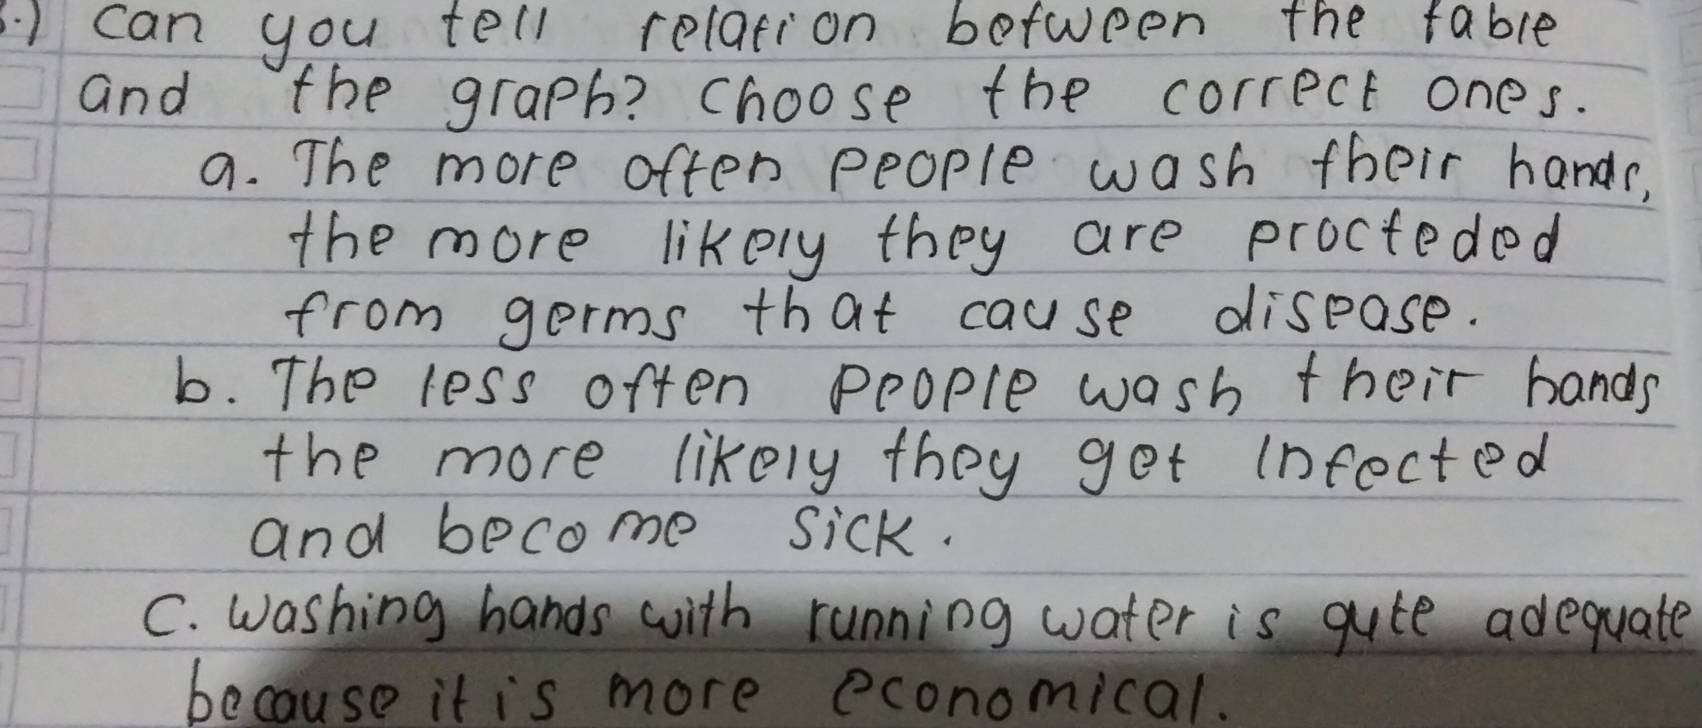 3.) can you tell relation between the table
and the graph? Choose the correct ones.
a. The more often people wash their hands,
the more likely they are procteded
from germs that cause disease.
b. The less often people wash their hands
the more likely they get infected
and become sick.
C. Washing hands with running water is qute adequate
because it is more economical.